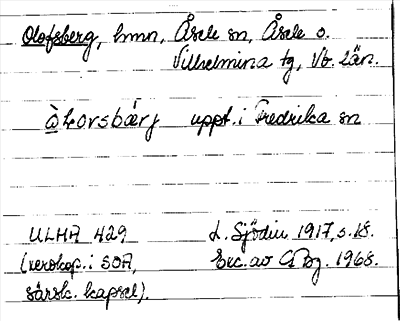 Olofsberg, hmn, Åsele sn, Åsele o.
Vilhelmina tg, Vb. län.
uppt. i Fredrika sn
ULMA 429 L. Sjödin 1917, s. 18.
(xeroxkop. i SOA, Exc. av 1968.
särsk. kapsel).